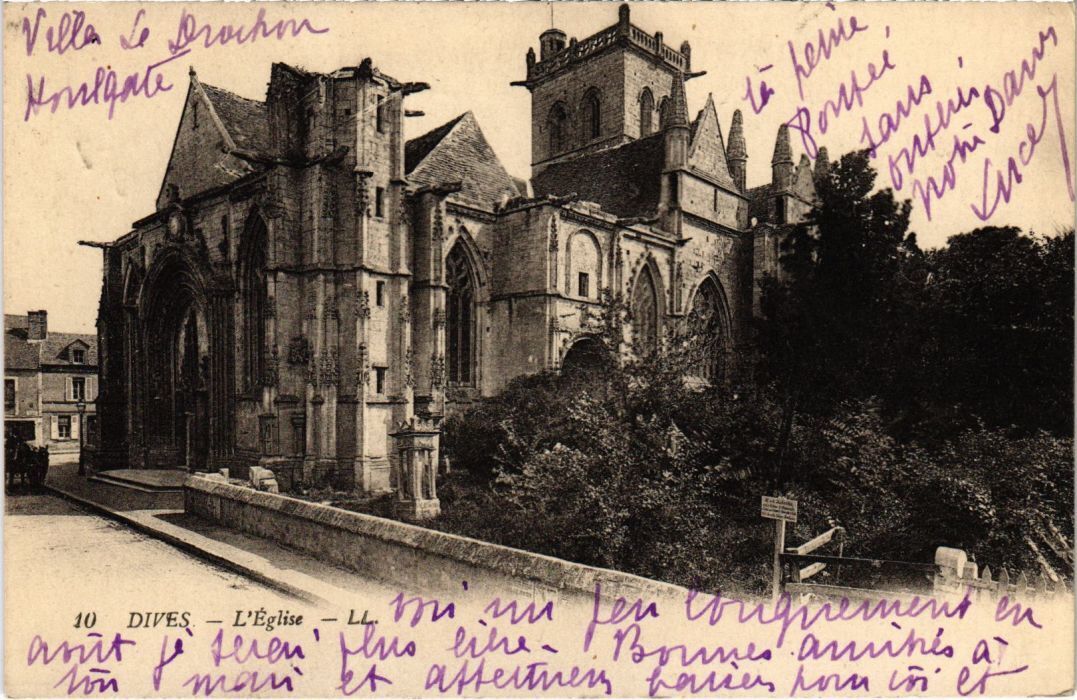 Villa Le Drochon
Houlgate
ta peine
sans
notre Dame
Lucey
10 DIVES. - L'Église - LL.
un peu longuement en
août je serai plus libre - Bonnes amitiés à
ton mari et affectueux baisers pour toi et